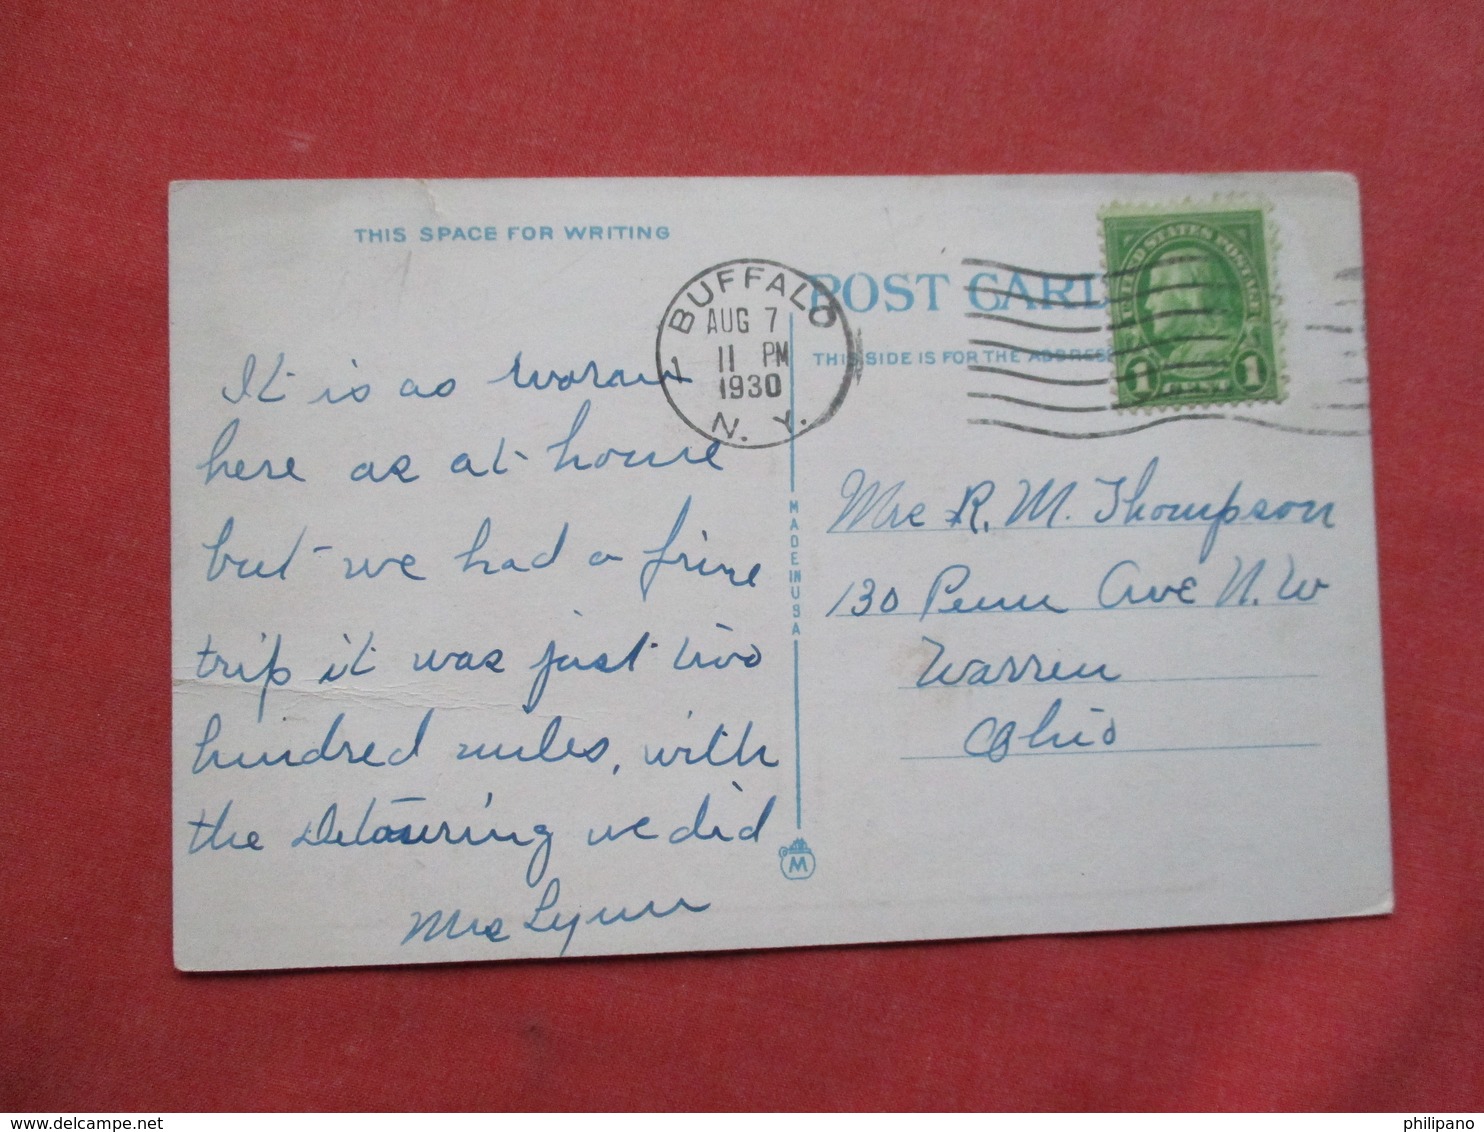 THIS SPACE FOR WRITING
BUFFALO
AUG 7
11 PM
1930
N. Y.
1
POST CARD
THIS SIDE IS FOR THE ADDRESS
UNITED STATES POSTAGE
1 CENT 1
It is as warm
here as at home
but we had a fine
trip it was just two
hundred miles, with
the Detouring we did
Mrs Lynn
MADE IN USA
M
Mrs R. M. Thompson
130 Penn Ave N. W
Warren
Ohio
http://www.delcampe.net
philipano